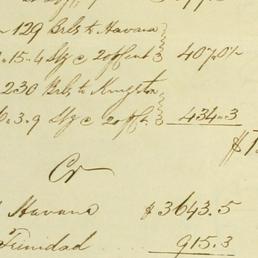 129 Brls to Havana
15-4 Stg @ 20 pr cent
230 Brls to Kingston
3.9 Stg @ 20 pr ct 434.3
Cr
Havana $3643.5
Trinidad 915.3